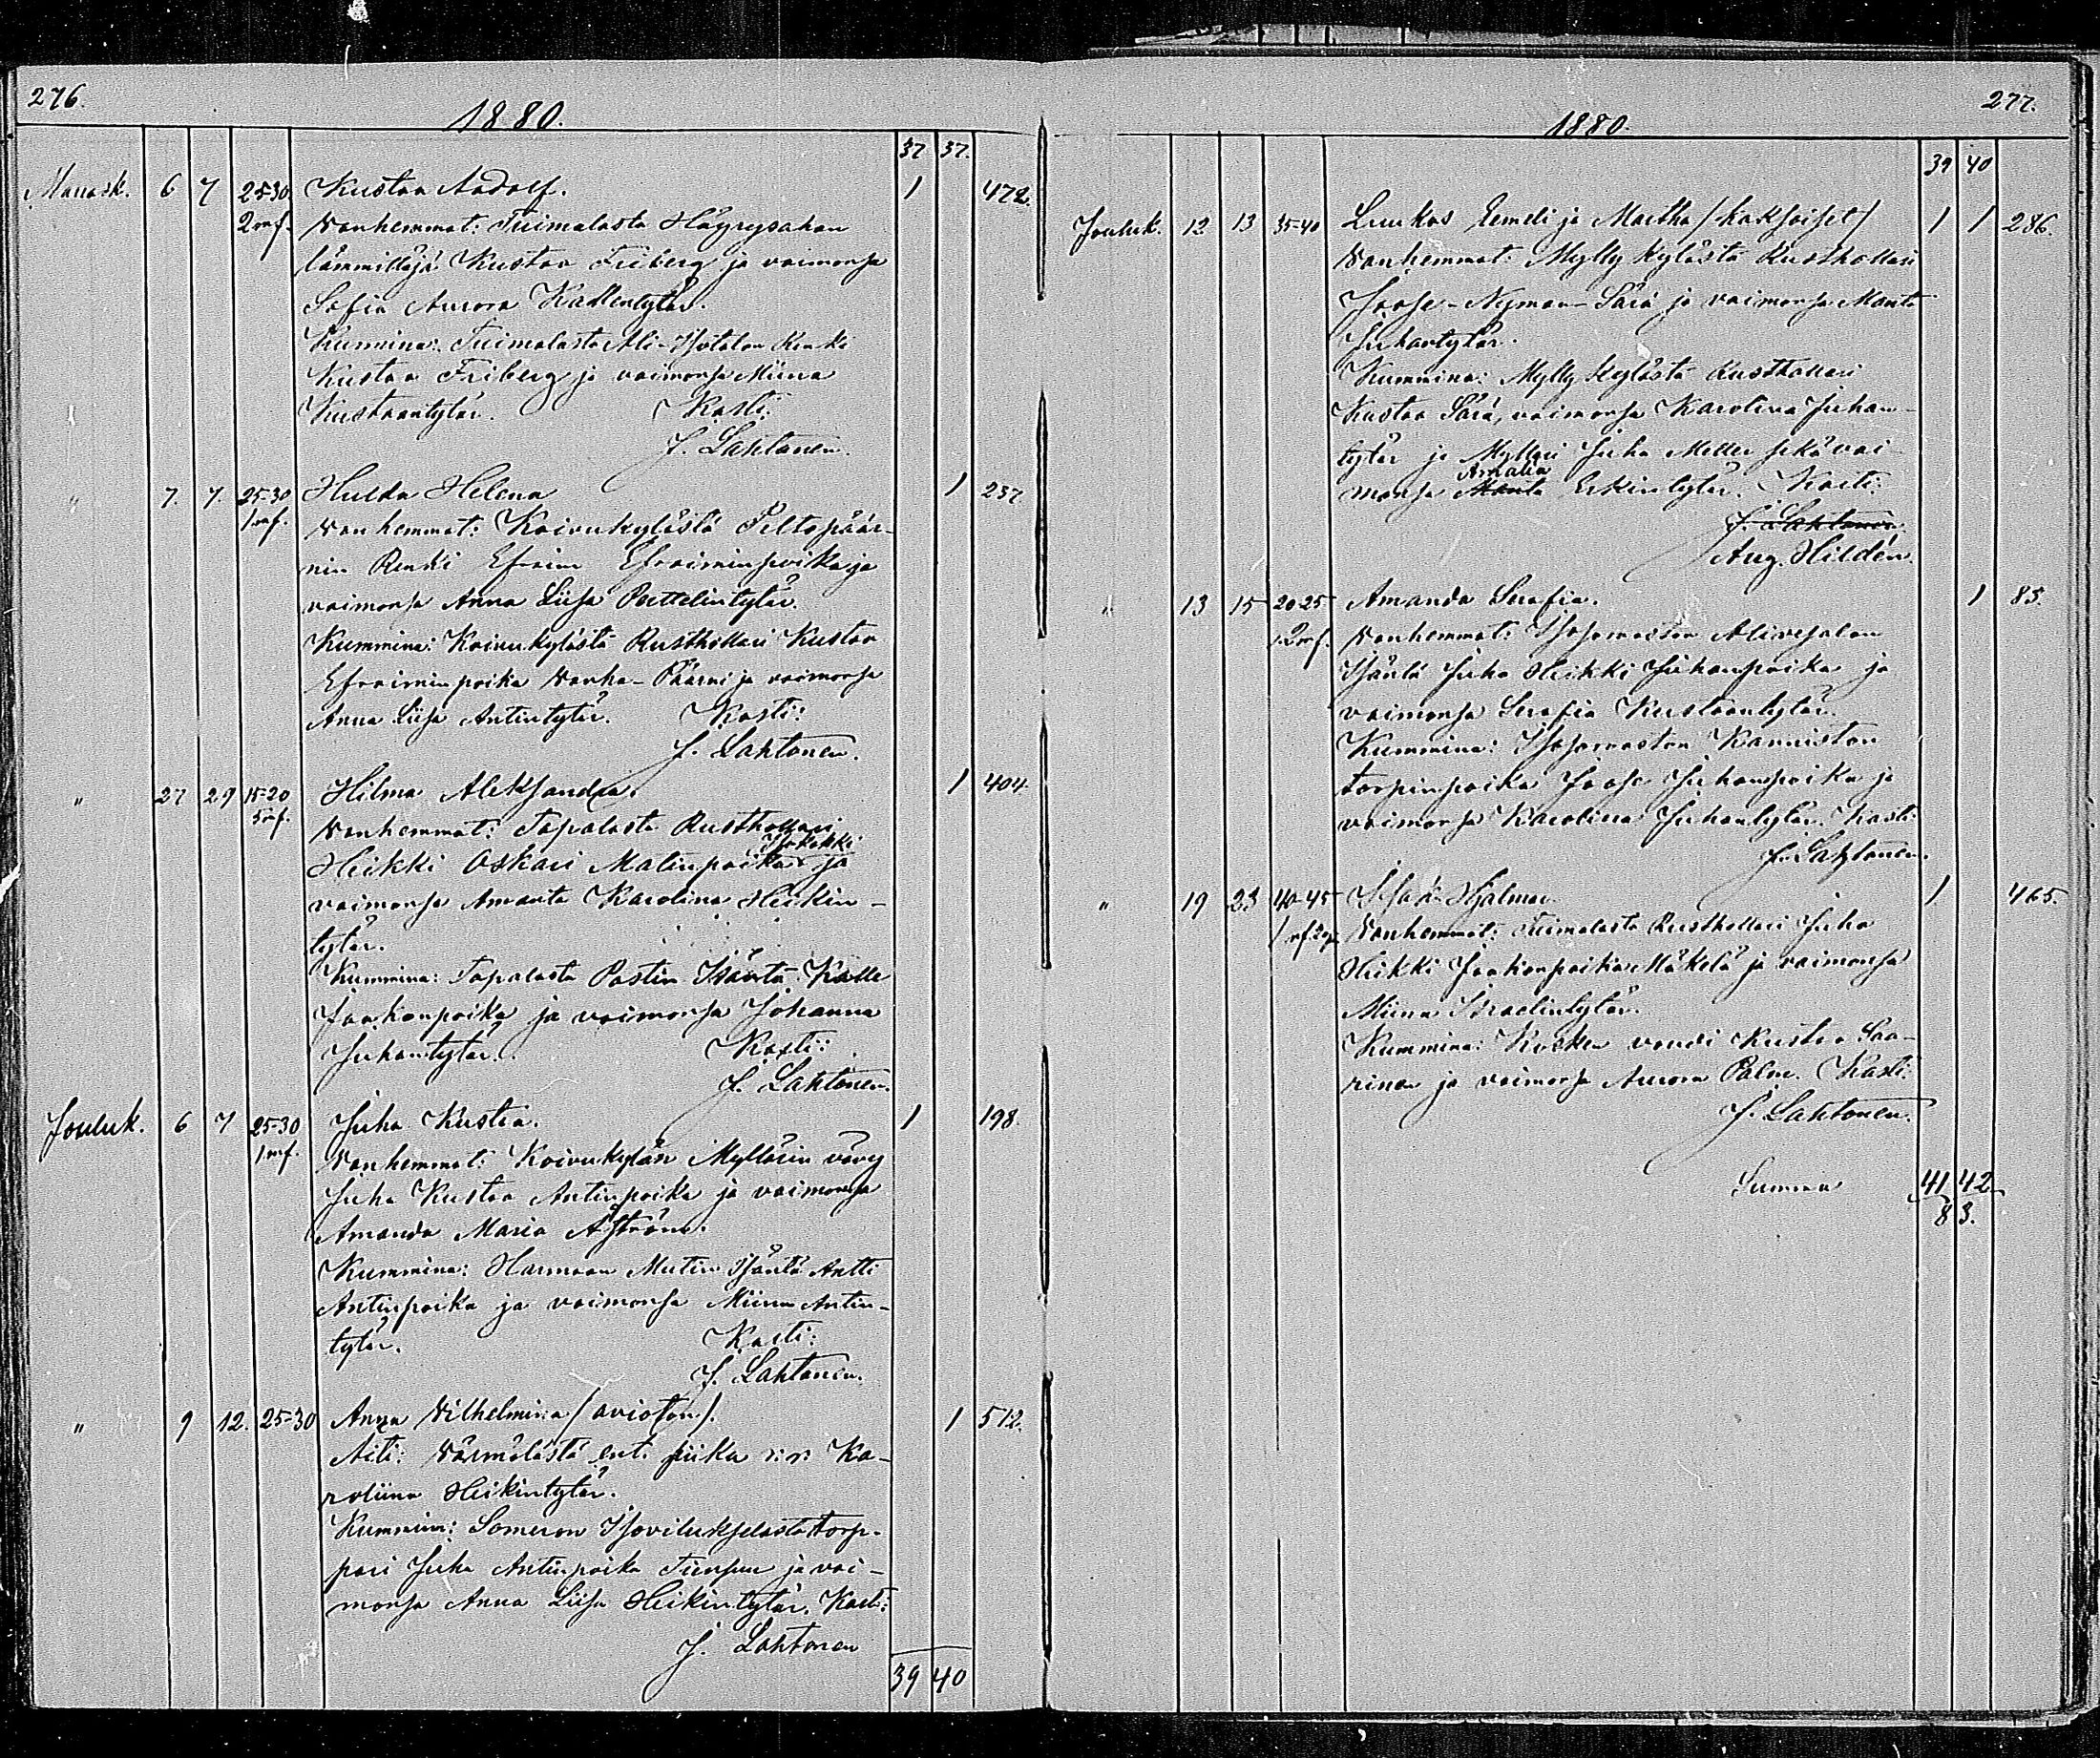 276.
1880.
37 37.
Marrask. 6 7 25-30 Kustaa Aadolf. 1 472.
2 mf. Vanhemmat: Tuimalasta Höyrysahan
lämmittäjä Kustaa Friberg ja vaimonsa
Sofia Aurora Kallentytär.
Kummina: Tuimalasta Ali-Isotalon Renki
Kustaa Friberg ja vaimonsa Miina
Kustaantytär. Kasti:
J. Lahtonen.
" 7. 7. 25-30 Hulda Helena 1 237
1 mf. Vanhemmat: Koivukylästä Peltopäär-
nin Renki Efraim Efraiminpoika ja
vaimonsa Anna Liisa Perttelintytär.
Kummina: Koivukylästä Rusthollari Kustaa
Efraiminpoika Vanha-Päärni ja vaimonsa
Anna Liisa Antintytär. Kasti:
J. Lahtonen.
" 27 29 15-20 Hilma Aleksandra. 1 404.
5 mf. Vanhemmat: Tapalasta Rusthollari
Isokokki
Heikki Oskari Matinpoika ja
vaimonsa Amanta Karolina Heikin-
tytär.
Kummina: Tapalasta Isäntä Kalle
Jaakonpoika ja vaimonsa Johanna
Juhantytär. Kasti:
J. Lahtonen.
Jouluk. 6 7 25-30 Juha Kustaa. 1 198.
1 mf. Vanhemmat: Koivukylän Myllärin vävy
Juha Kustaa Antinpoika ja vaimonsa
Amanda Maria Åström.
Kummina: Harmaan Isäntä Antti
Antinpoika ja vaimonsa Miina Antin-
tytär. Kasti:
J. Lahtonen.
" 9 12. 25-30 Anna Vilhelmina / avioton /. 1 512.
Äiti: Värmälästä ent. piika Ka-
roliina Heikintytär.
Kummina: Someron torp-
pari Juha Antinpoika ja vai-
monsa Anna Liisa Heikintytär. Kasti:
J. Lahtonen
39 40
277.
1880.
39 40
Jouluk. 12 13 35-40 Luukas Eemeli ja Martha / kaksoiset / 1 1 286.
Vanhemmat: Mylly kylästä Rusthollari
Joose - Nyman - Särä ja vaimonsa Manta
Juhantytär.
Kummina: Mylly kylästä Rusthollari
Kustaa Särä, vaimonsa Karolina Juhan-
tytär ja Mylläri Juha Meller sekä vai-
Amalia
monsa Manta Erkintytär. Kasti:
J. Lahtonen
Aug. Hildén.
" 13 15 20-25 Amanda Serafia. 1 85.
2 mf. Vanhemmat:
Isäntä Juha Heikki Juhanpoika ja
vaimonsa Serafia Kustaantytär.
Kummina: Kanniston
torpinpoika Joose Juhanpoika ja
vaimonsa Karolina Juhantytär. Kasti:
J. Lahtonen.
" 19 23 40-45 Isak Hjalmar. 1 465.
Vanhemmat: Tuimalasta Rusthollari Juha
Heikki Jaakonpoika Mäkelä ja vaimonsa
Miina Israelintytär.
Kummina: Kosken vouti Kustaa Saa-
rinen ja vaimonsa Aurora Palm. Kasti:
J. Lahtonen.
Summa 41 42
83.